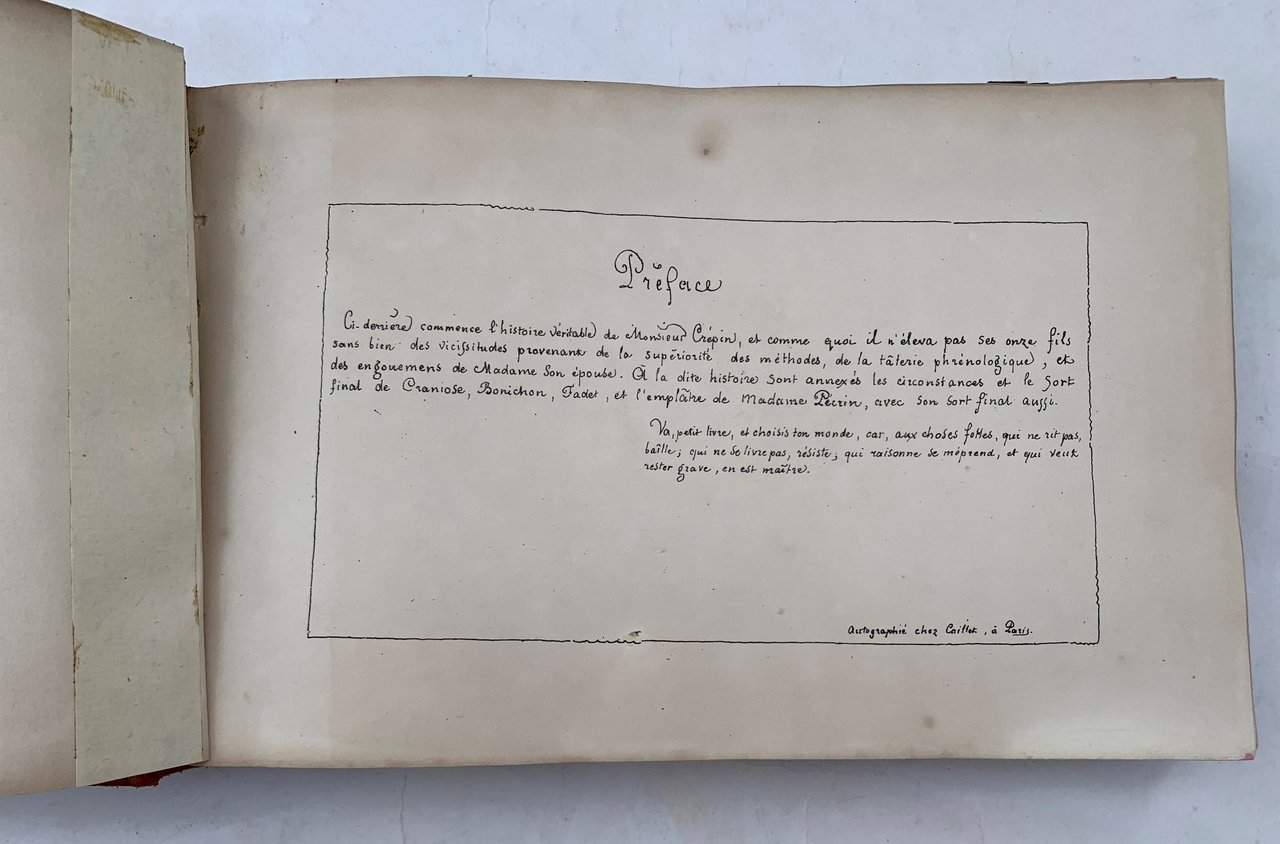 Préface
Ci-derrière commence l'histoire véritable de Monsieur Crépin, et comme quoi il n'éleva pas ses onze fils
sans bien des vicissitudes provenant de la supériorité des méthodes, de la tâterie phrénologique, et
des engouemens de Madame son épouse. A la dite histoire sont annexés les circonstances et le sort
final de Craniose, Bonichon, Fadet, et l'emplâtre de Madame Pécrin, avec son sort final aussi.
Va, petit livre, et choisis ton monde, car, aux choses folles, qui ne rit pas,
baîlle; qui ne se livre pas, résiste; qui raisonne se méprend, et qui veut
rester grave, en est maître.
Autographié chez Caillet, à Paris.